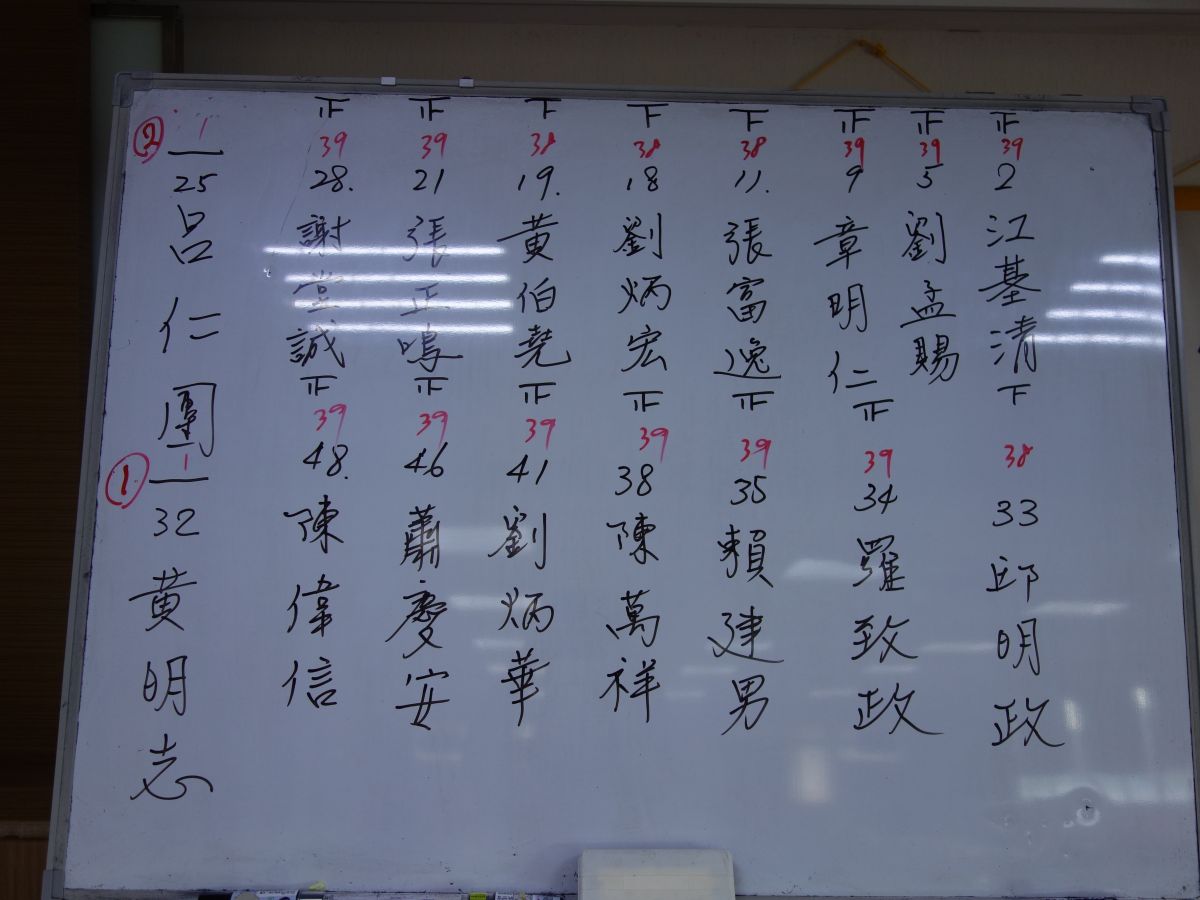 正 39 2 江基清
正 39 5 劉孟賜
正 39 9 章明仁
下 38 11. 張富逸
下 38 18 劉炳宏
下 38 19. 黃伯堯
正 39 21 張正鳴
正 39 28. 謝堂誠
② 一 1 25 呂仁團
下 38 33 邱明政
正 39 34 羅致政
正 39 35 賴建男
正 39 38 陳萬祥
正 39 41 劉炳華
正 39 46 蕭慶安
正 39 48. 陳偉信
① 一 1 32 黃明志